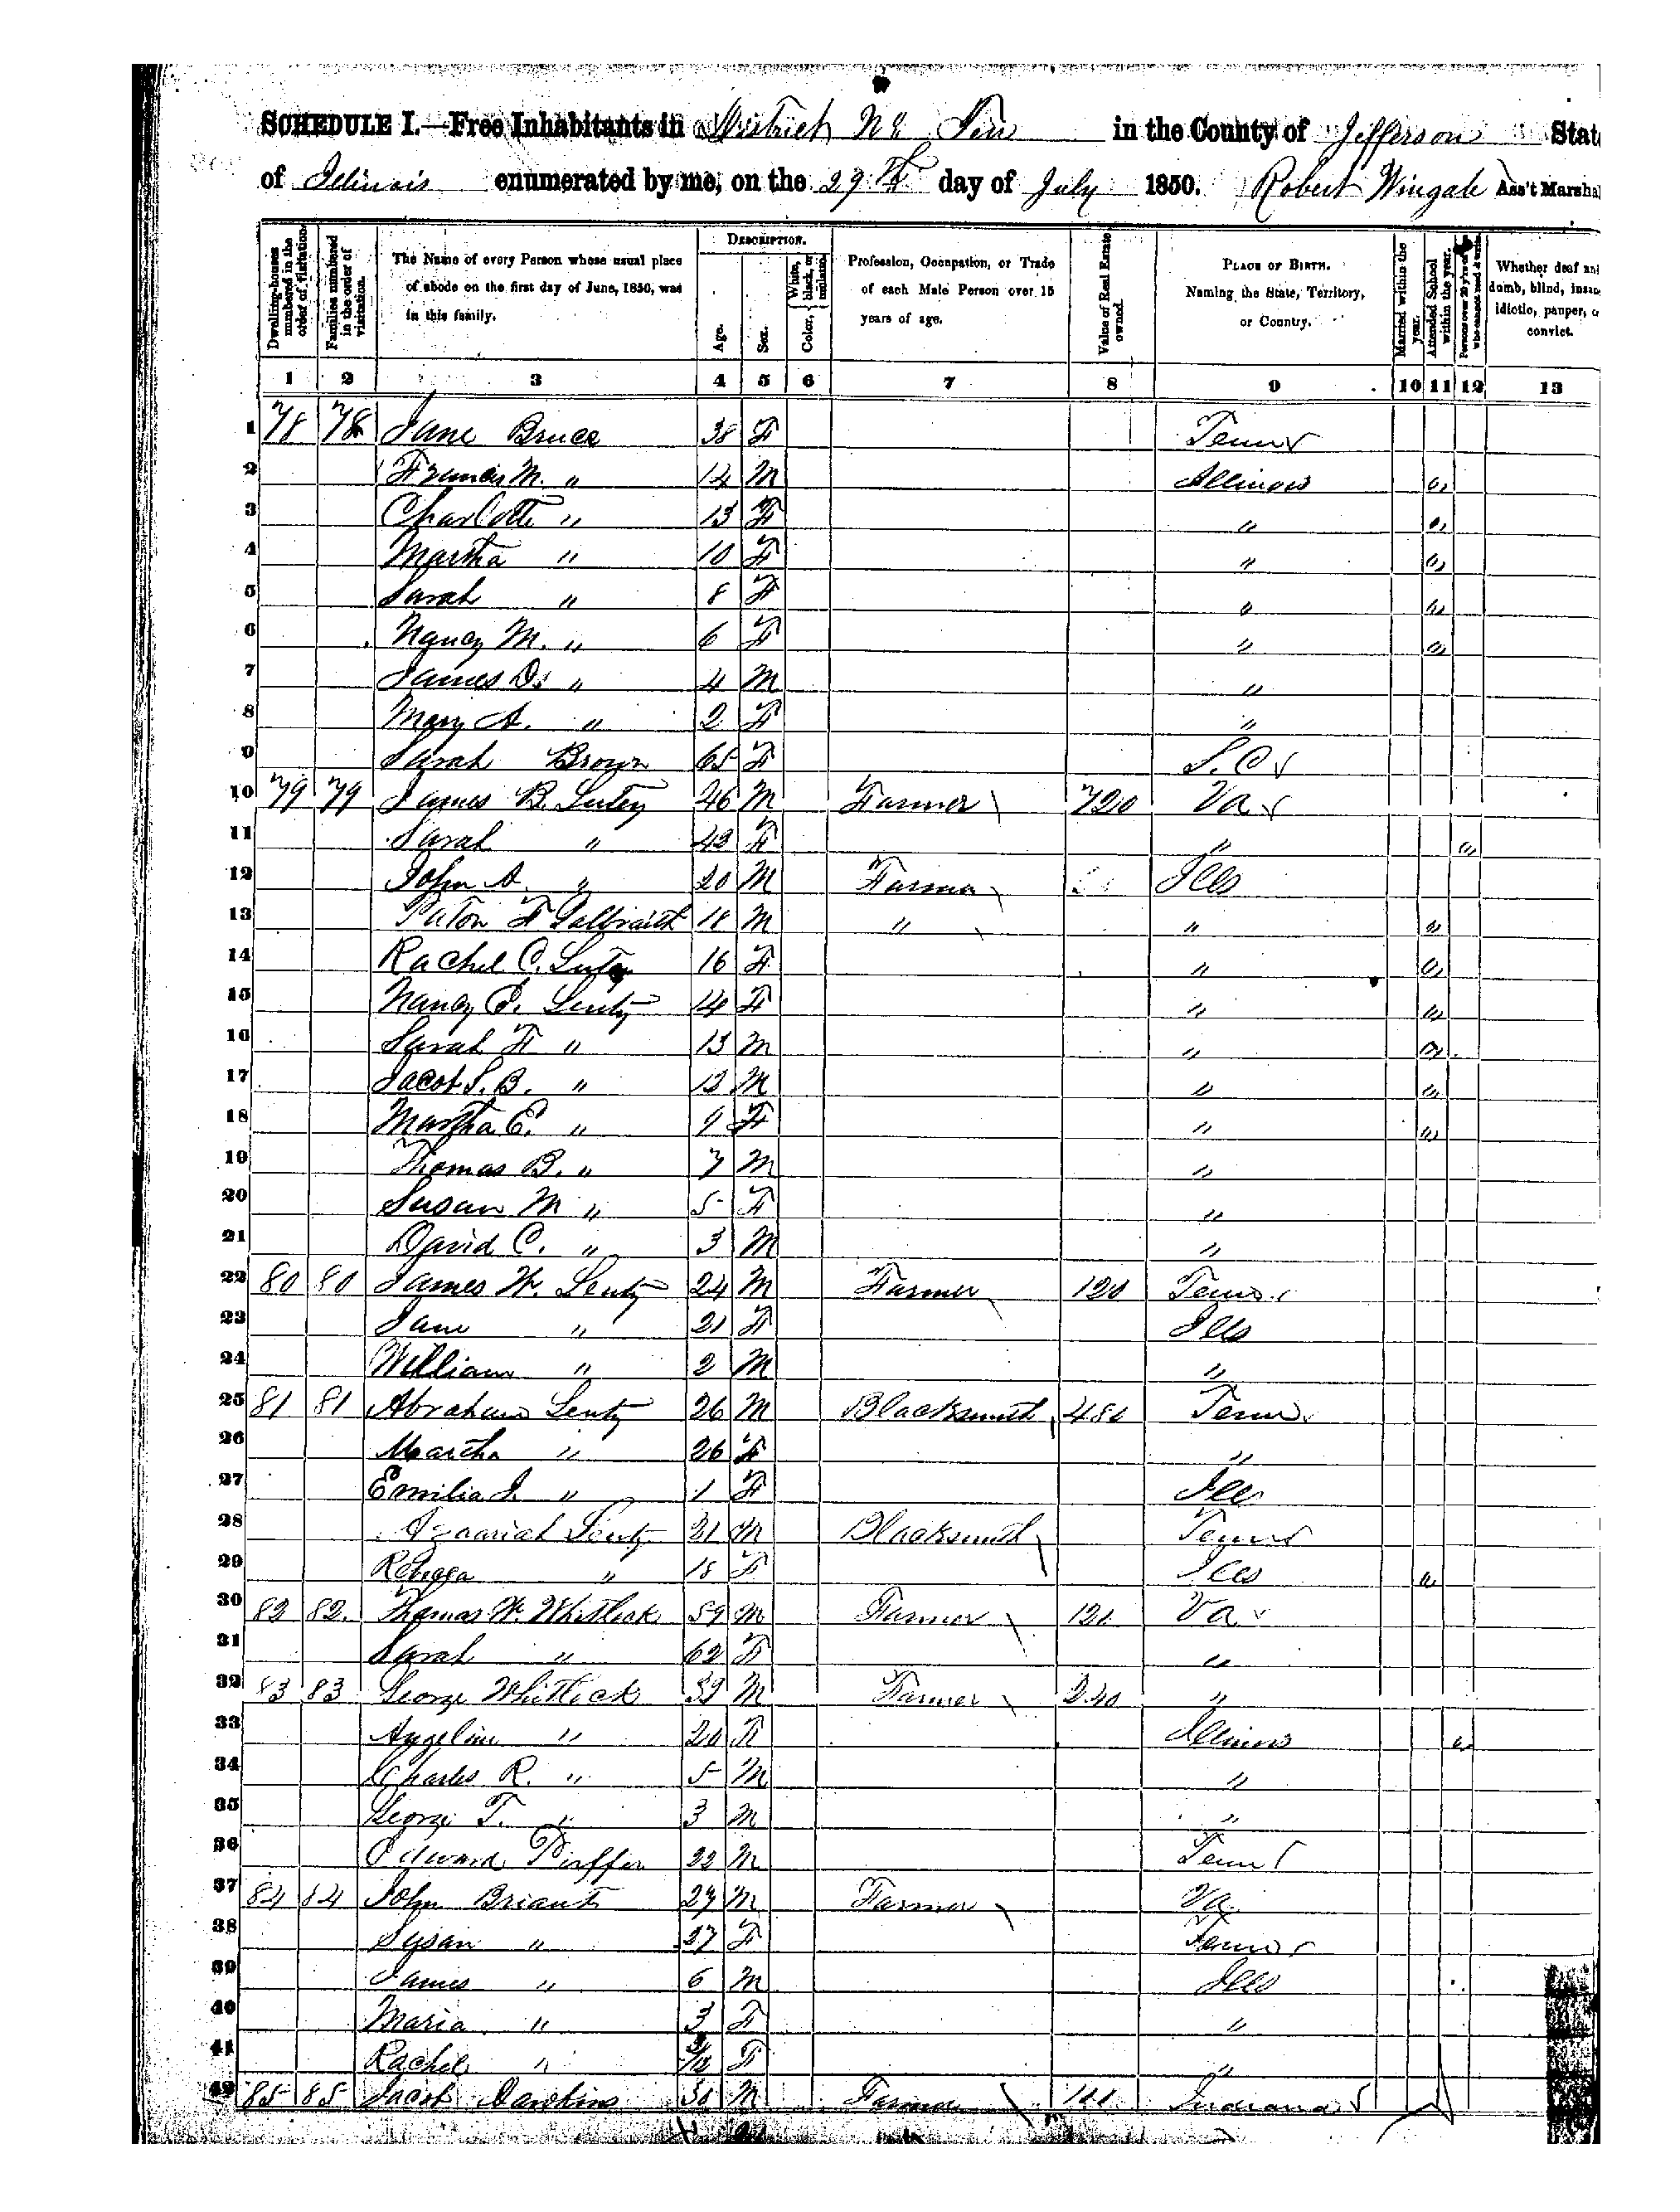 SCHEDULE I.—Free Inhabitants in District No Ten in the County of Jefferson State
of Illinois enumerated by me, on the 29th day of July 1850. Robert Wingate Ass't Marshal
Dwelling-houses numbered in the order of visitation.
Families numbered in the order of visitation.
The Name of every Person whose usual place of abode on the first day of June, 1850, was in this family.
DESCRIPTION.
Age.
Sex.
Color, White, black, or mulatto.
Profession, Occupation, or Trade of each Male Person over 15 years of age.
Value of Real Estate owned.
PLACE OF BIRTH. Naming the State, Territory, or Country.
Married within the year.
Attended School within the year.
Persons over 20 y'rs of age who cannot read & write.
Whether deaf and dumb, blind, insane, idiotic, pauper, or convict.
1 2 3 4 5 6 7 8 9 10 11 12 13
1 78 78 Jane Bruce 38 F Tenn
2 Francis M. " 14 M Illinois "
3 Charlotte " 13 F " "
4 Martha " 10 F " "
5 Sarah " 8 F " "
6 Nancy M. " 6 F " "
7 James D. " 4 M "
8 Mary A. " 2 F "
9 Sarah Brown 65 F S.C
10 79 79 James B. 46 M Farmer 720 Va
11 Sarah " 43 F " "
12 John A. " 20 M Farmer Ills
13 F Galbraith 18 M " " "
14 Rachel C. 16 F " "
15 Nancy E. Lentz 14 F " "
16 Sarah F " 13 M " "
17 Jacob S. B. " 12 M " "
18 Martha E. " 9 F " "
19 Thomas B. " 7 M "
20 Susan M " 5 F "
21 David C. " 3 M "
22 80 80 James W. Lentz 24 M Farmer 120 Tenn
23 Jane " 21 F Ills
24 William " 2 M "
25 81 81 Abraham Lentz 26 M Blacksmith 480 Tenn
26 Martha " 26 F "
27 Emilia J. " 1 F Ills
28 Lentz 21 M Blacksmith Tenn
29 Rebecca " 18 F Ills "
30 82 82 Thomas W. Whitlock 59 M Farmer 120 Va
31 Sarah " 62 F "
32 83 83 George Whitlock 39 M Farmer 240 "
33 Angeline " 20 F Illinois "
34 Charles R. " 5 M "
35 George T. " 3 M "
36 Edward 22 M Tenn
37 84 84 John Briant 29 M Farmer Va
38 Susan " 27 F Tenn
39 James " 6 M Ills
40 Maria " 3 F "
41 Rachel " F "
42 85 85 Jacob Dawkins 30 M Farmer Indiana